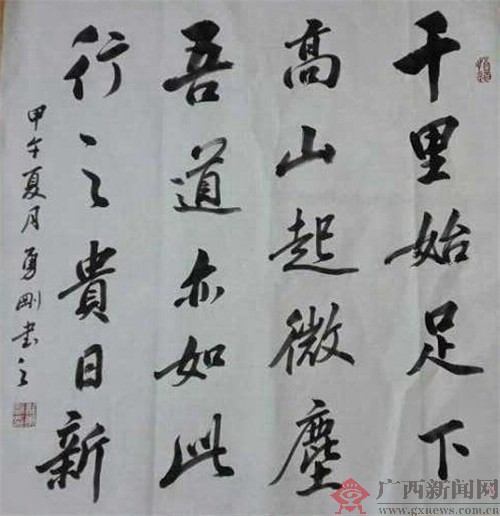 千里始足下
高山起微塵
吾道亦如此
行之貴日新
甲午夏月勇刚書之
广西新闻网
www.gxnews.com.cn